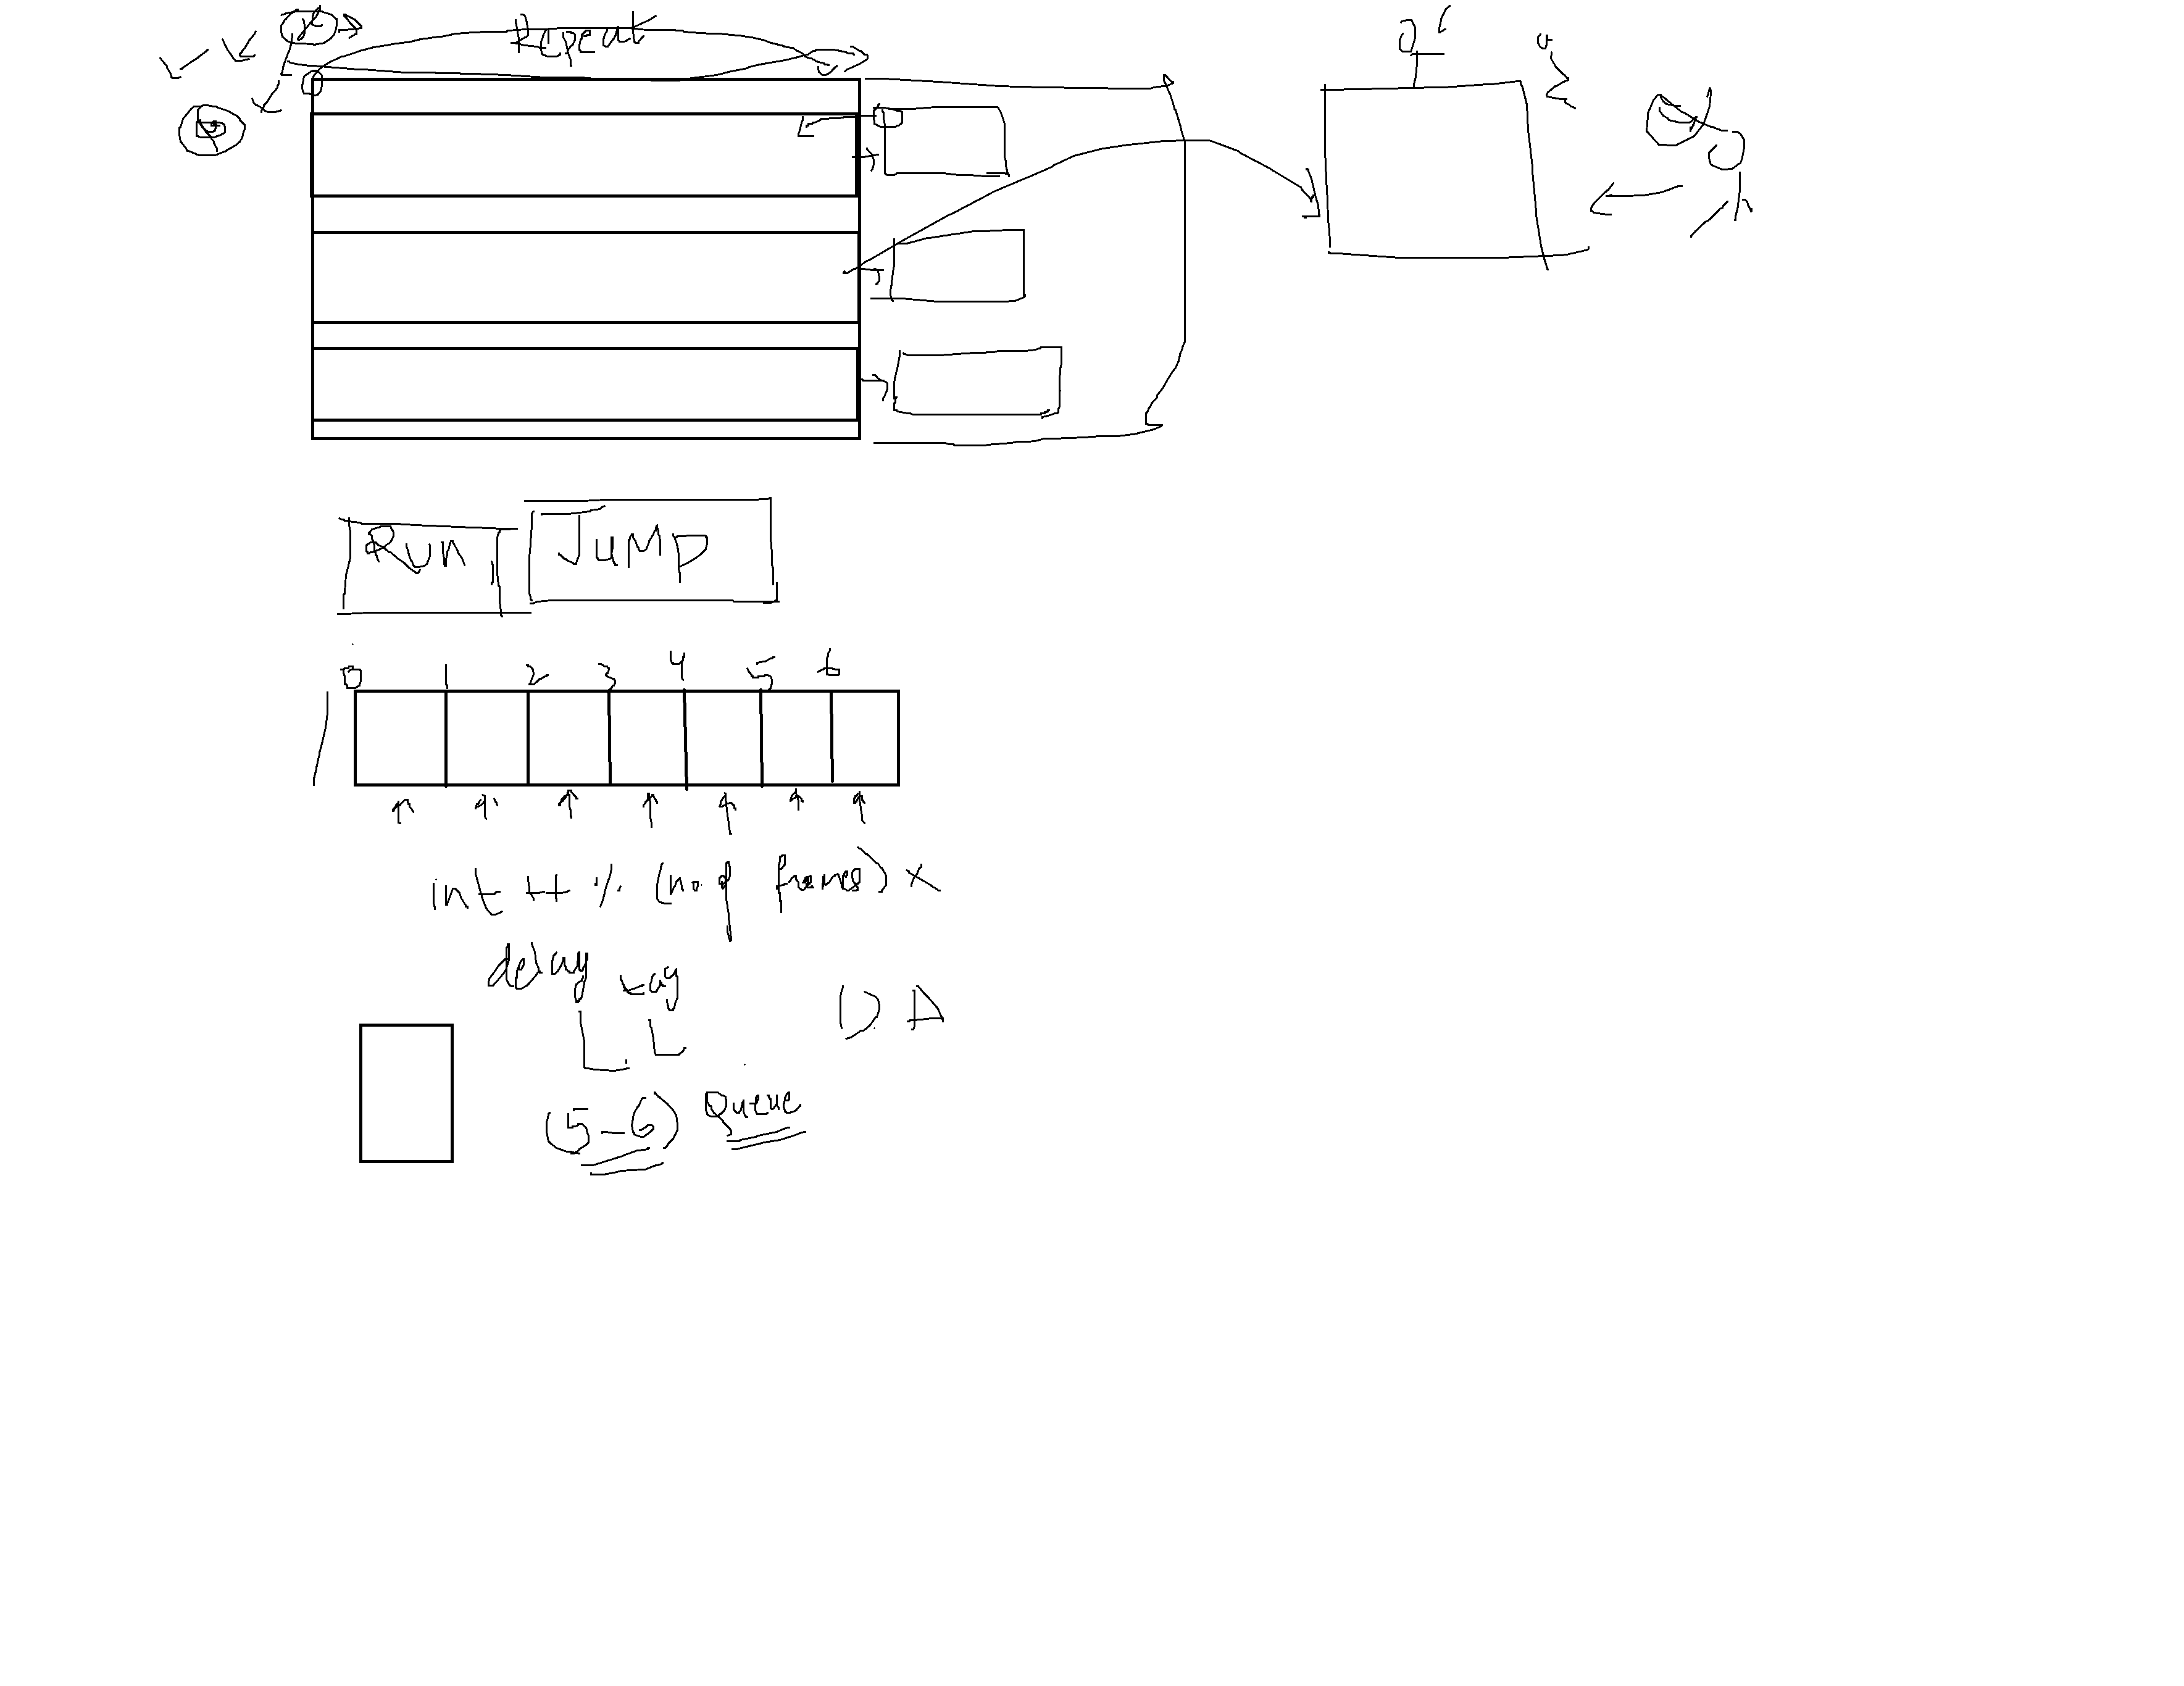 Repeat
Run
JUMP
0 1 2 3 4 5 6
int ++ % (no. of frames) x
delay
(5-6) Queue